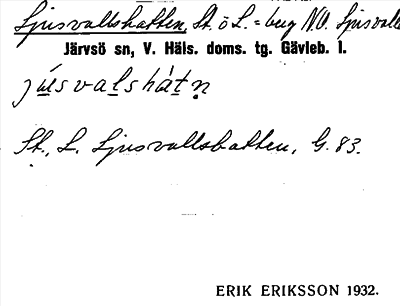 Ljusvallshatten, St. o L. = berg NO. Ljusvalls
Järvsö sn, V. Häls. doms. tg. Gävleb. l.
júlsvalshàtṇ
St., L. Ljusvallshatten, G. 83.
ERIK ERIKSSON 1932.